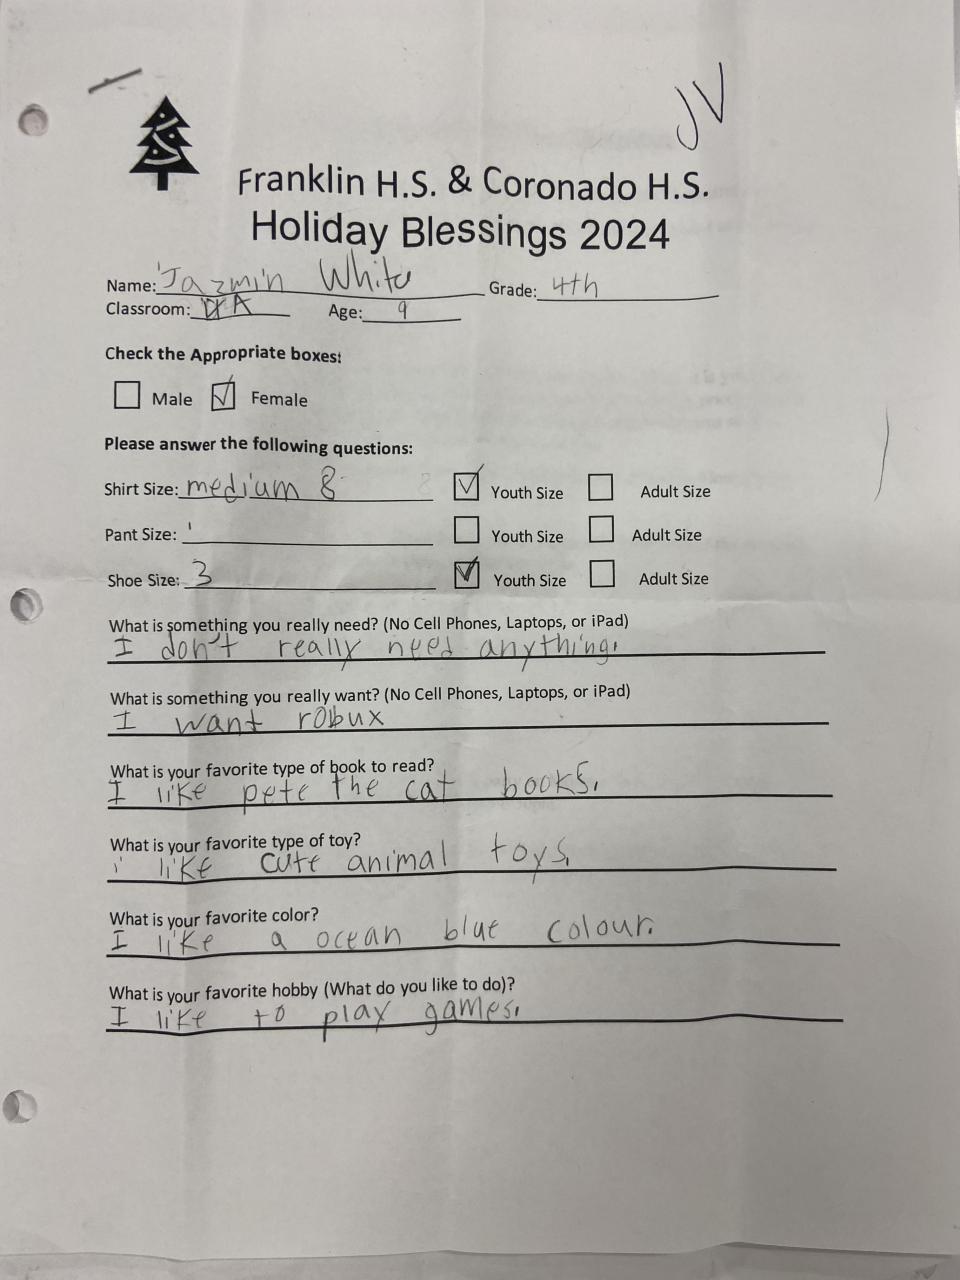 JV
Franklin H.S. & Coronado H.S.
Holiday Blessings 2024
Name: Jazmin White Grade: 4th
Classroom: A Age: 9
Check the Appropriate boxes:
Male Female
Please answer the following questions:
Shirt Size: medium 8 Youth Size Adult Size
Pant Size: Youth Size Adult Size
Shoe Size: 3 Youth Size Adult Size
What is something you really need? (No Cell Phones, Laptops, or iPad)
I don't really need anything.
What is something you really want? (No Cell Phones, Laptops, or iPad)
I want robux
What is your favorite type of book to read?
I like pete the cat books.
What is your favorite type of toy?
i like cute animal toys.
What is your favorite color?
I like a ocean blue colour.
What is your favorite hobby (What do you like to do)?
I like to play games.